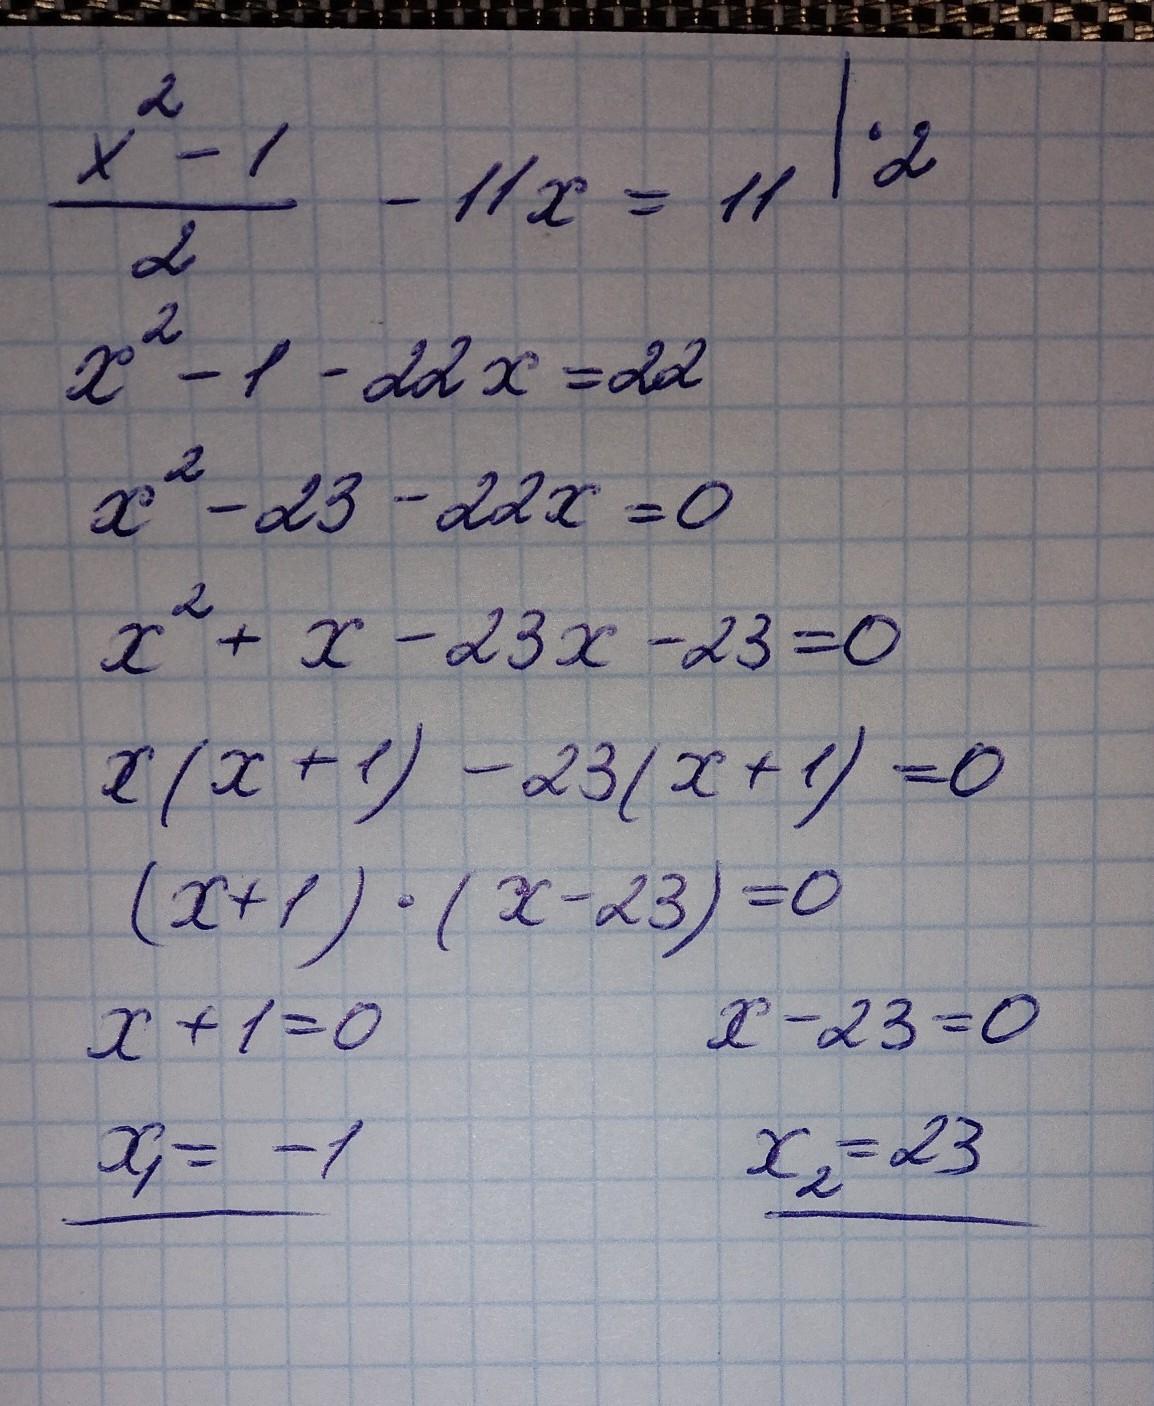 (x² - 1)/2 - 11x = 11 | · 2
x² - 1 - 22x = 22
x² - 23 - 22x = 0
x² + x - 23x - 23 = 0
x(x + 1) - 23(x + 1) = 0
(x + 1) · (x - 23) = 0
x + 1 = 0 x - 23 = 0
x₁ = -1 x₂ = 23